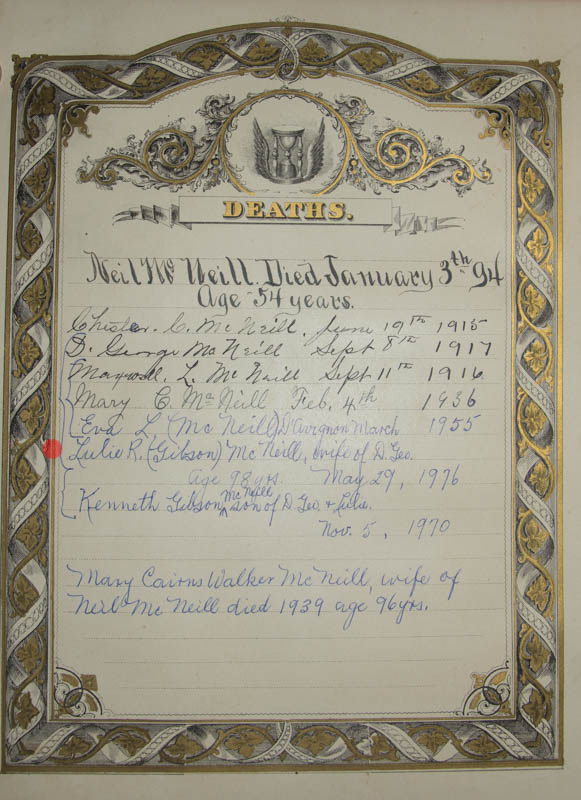 DEATHS.
Neil Mc Neill Died January 3th 94
Age 54 years.
Chester. C. Mc Neill. June 19TH 1915
D. George Mc Neill Sept 8TH 1917
Maxwell. L. Mc Neill Sept 11TH 1916
Mary C. Mc Neill Feb. 4th 1936
Eva L. (Mc Neill) D'avignon March 1955
Lulie R. (Gibson) McNeill, wife of D. Geo.
Age 98 yrs. May 29, 1976
Kenneth Gibson McNeill son of D. Geo. & Lulie.
Nov. 5, 1970
Mary Cairns Walker McNeill, wife of
Neil Mc Neill died 1939 age 96 yrs.